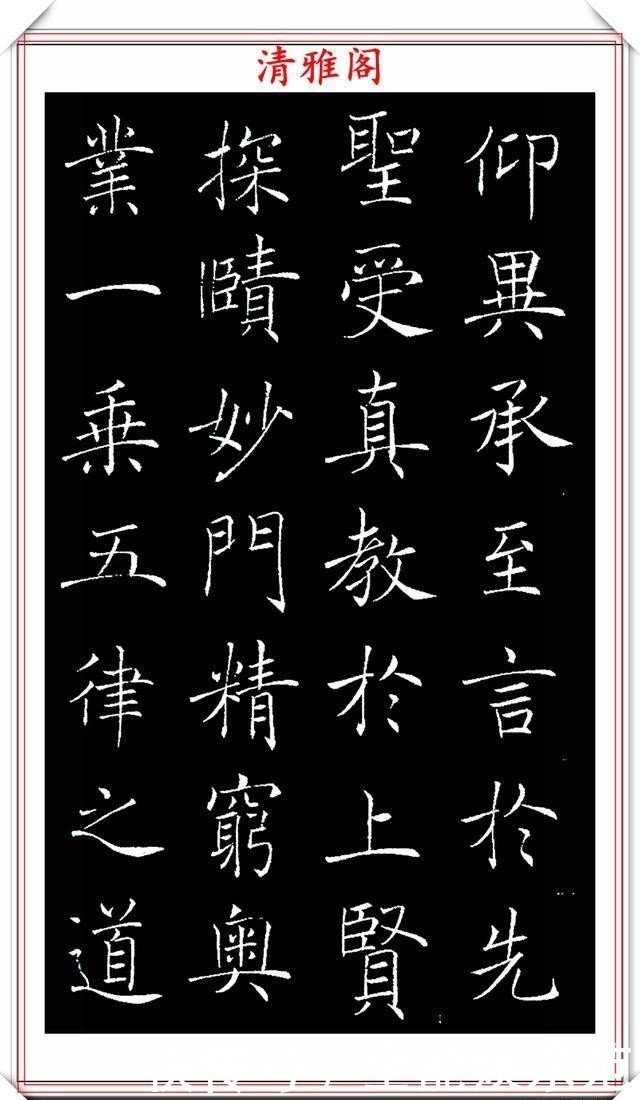 清雅阁
仰異承至言於先
聖受真教於上賢
探賾妙門精窮奥
業一乗五律之道